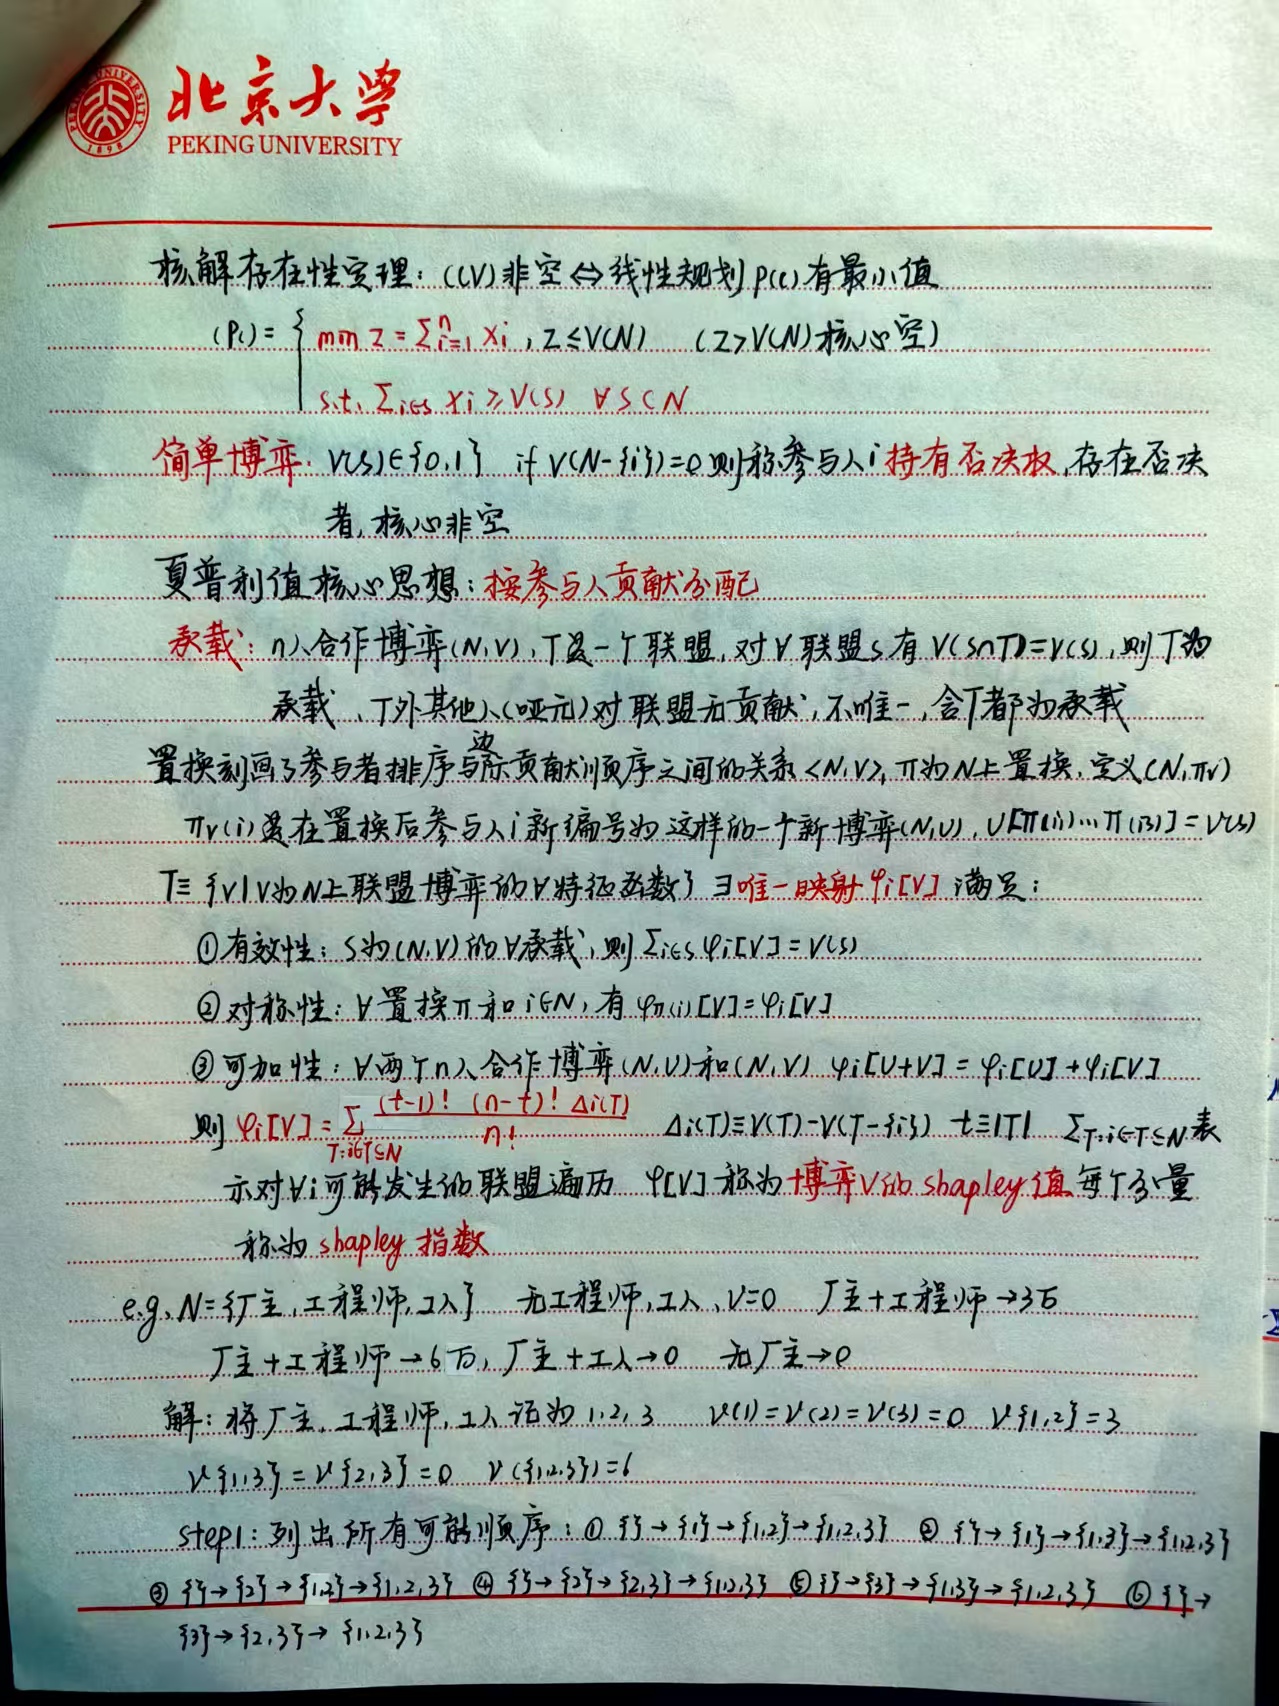 北京大学
PEKING UNIVERSITY
核解存在性定理：C(V)非空⇔线性规划P(c)有最小值
(Pc)= { min z = Σⁿᵢ₌₁ xi , z≤V(N) （z>V(N)核心空）
s.t. Σi∈s xi ≥ V(s) ∀S⊂N
简单博弈：V(s)∈{0,1} if V(N-{i})=0则称参与人i持有否决权，存在否决
者，核心非空
夏普利值核心思想：按参与人贡献分配
承载：n人合作博弈(N,V)，T是一个联盟，对∀联盟s有V(S∩T)=V(s)，则T为
承载、T外其他人(哑元)对联盟无贡献，不唯一，含T都为承载
置换刻画了参与者排序与边际贡献顺序之间的关系<N,V>，π为N上置换，定义(N,πv)
πv(i)是在置换后参与人i新编号为这样的一个新博弈(N,U)，U[π(i1)…π(is)]=V(s)
T≡{V|V为N上联盟博弈的∀特征函数}∃唯一映射φi[V]满足：
①有效性：S为(N,V)的∀承载，则Σi∈s φi[V]=V(s)
②对称性：∀置换π和i∈N，有φπ(i)[V]=φi[V]
③可加性：∀两个n人合作博弈(N,U)和(N,V) φi[U+V]=φi[U]+φi[V]
则 φi[V]=Σ T:i∈T⊆N (t-1)!(n-t)!Δi(T)/n! Δi(T)≡V(T)-V(T-{i}) t≡|T| ΣT:i∈T⊆N表
示对∀i可能发生的联盟遍历 φ[V]称为博弈V的shapley值每个分量
称为shapley指数
e.g. N={厂主，工程师，工人} 无工程师，工人，V=0 厂主+工程师→3万
厂主+工程师→6万，厂主+工人→0 无厂主→0
解：将厂主，工程师，工人记为1,2,3 V(1)=V(2)=V(3)=0 V{1,2}=3
V{1,3}=V{2,3}=0 V({1,2,3})=6
step1：列出所有可能顺序：① {}→{1}→{1,2}→{1,2,3} ② {}→{1}→{1,3}→{1,2,3}
③ {}→{2}→{1,2}→{1,2,3} ④ {}→{2}→{2,3}→{1,2,3} ⑤ {}→{3}→{1,3}→{1,2,3} ⑥ {}→
{3}→{2,3}→{1,2,3}